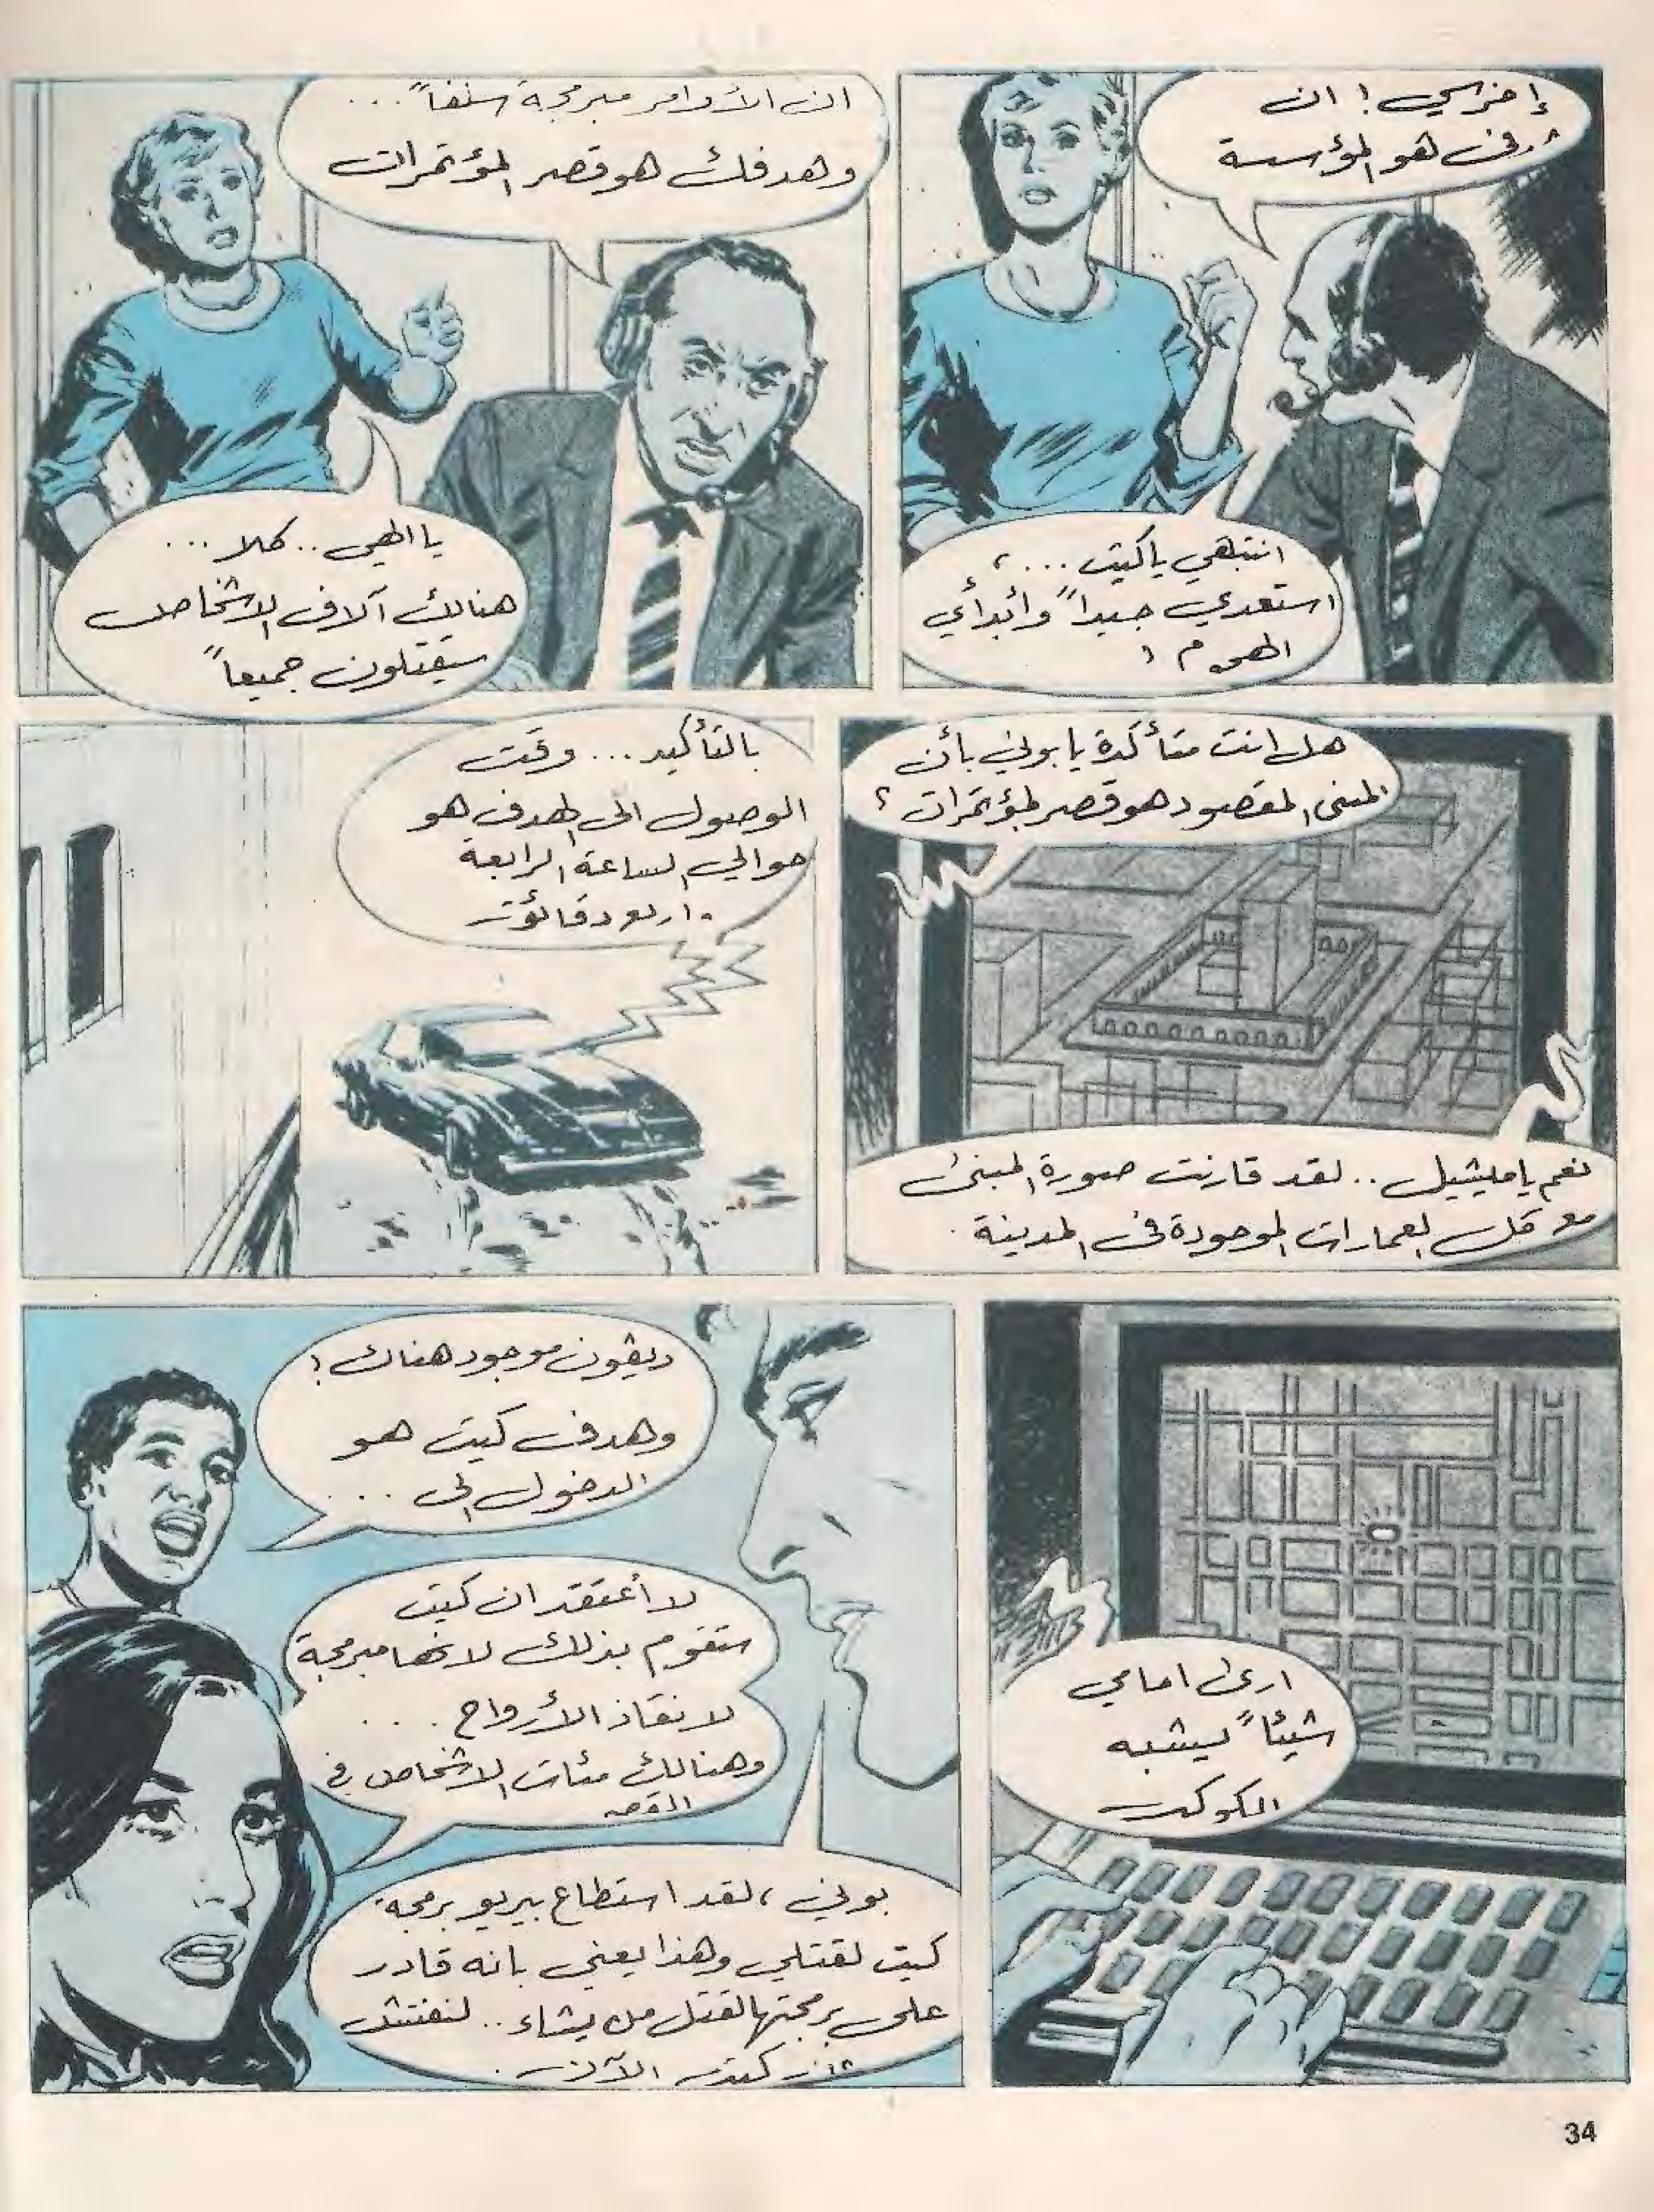 إخرسي! ان
هو المؤسسة
انتبهي ياكيت...،
استعدي جيداً وأبدأي
الهجوم!
ان الأوامر مبرمجة سلفاً...
وهدفك هو قصر المؤتمرات
يا الهي.. كلا...
هنالك آلاف الاشخاص
سيقتلون جميعاً
هل انت متأكدة يا بوني بأن
المبنى المقصود هو قصر المؤتمرات؟
نعم يا ميشيل.. لقد قارنت صورة المبنى
مع كل العمارات الموجودة في المدينة.
بالتأكيد... وقت
الوصول الى الهدف هو
حوالي الساعة الرابعة
واربع دقائق
ارى امامي
شيئاً يشبه
الكوكب
ديڤون موجود هناك!
وهدف كيت هو
الدخول الى...
لا أعتقد ان كيت
ستقوم بذلك لانها مبرمجة
لانقاذ الأرواح...
وهنالك مئات الاشخاص في
القصر
بوني، لقد استطاع بيريو برمجة
كيت لقتلي وهذا يعني بانه قادر
على برمجتها لقتل من يشاء.. لنفتش
كيت الآن.
34